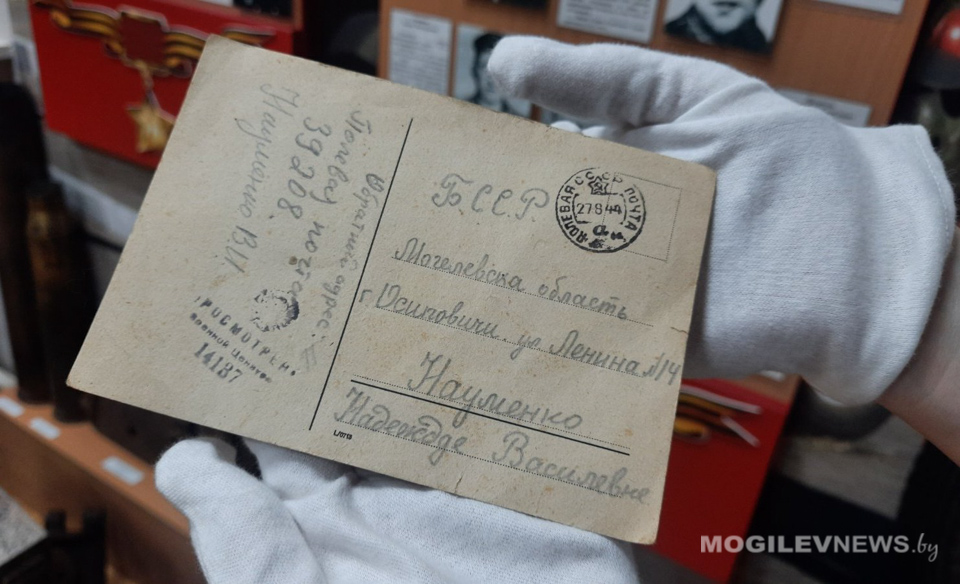 Обратный адрес:
Полевая почта
39208
Науменко В И
ПРОСМОТРЕНО
Военной Цензурой
14187
БССР
ПОЛЕВАЯ ПОЧТА СССР
27 8 44
Могелевска область
г Осиповичи ул Ленина №14
Науменко
Надежде Василевне
MOGILEVNEWS.by